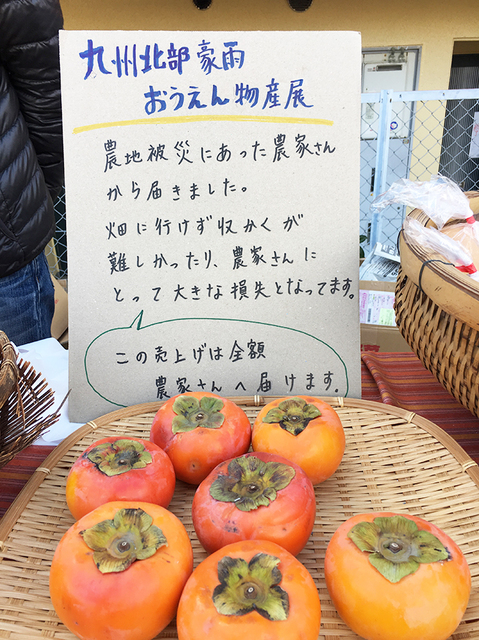 九州北部豪雨
おうえん物産展
農地被災にあった農家さん
から届きました。
畑に行けず収かくが
難しかったり、農家さんに
とって大きな損失となってます。
この売上げは全額
農家さんへ届けます。